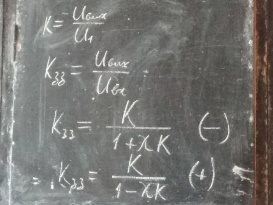 K = Uвых / U1
Kзз = Uвых / Uвх
Kзз = K / 1 + λK (–)
= Kзз = K / 1 – λK (+)